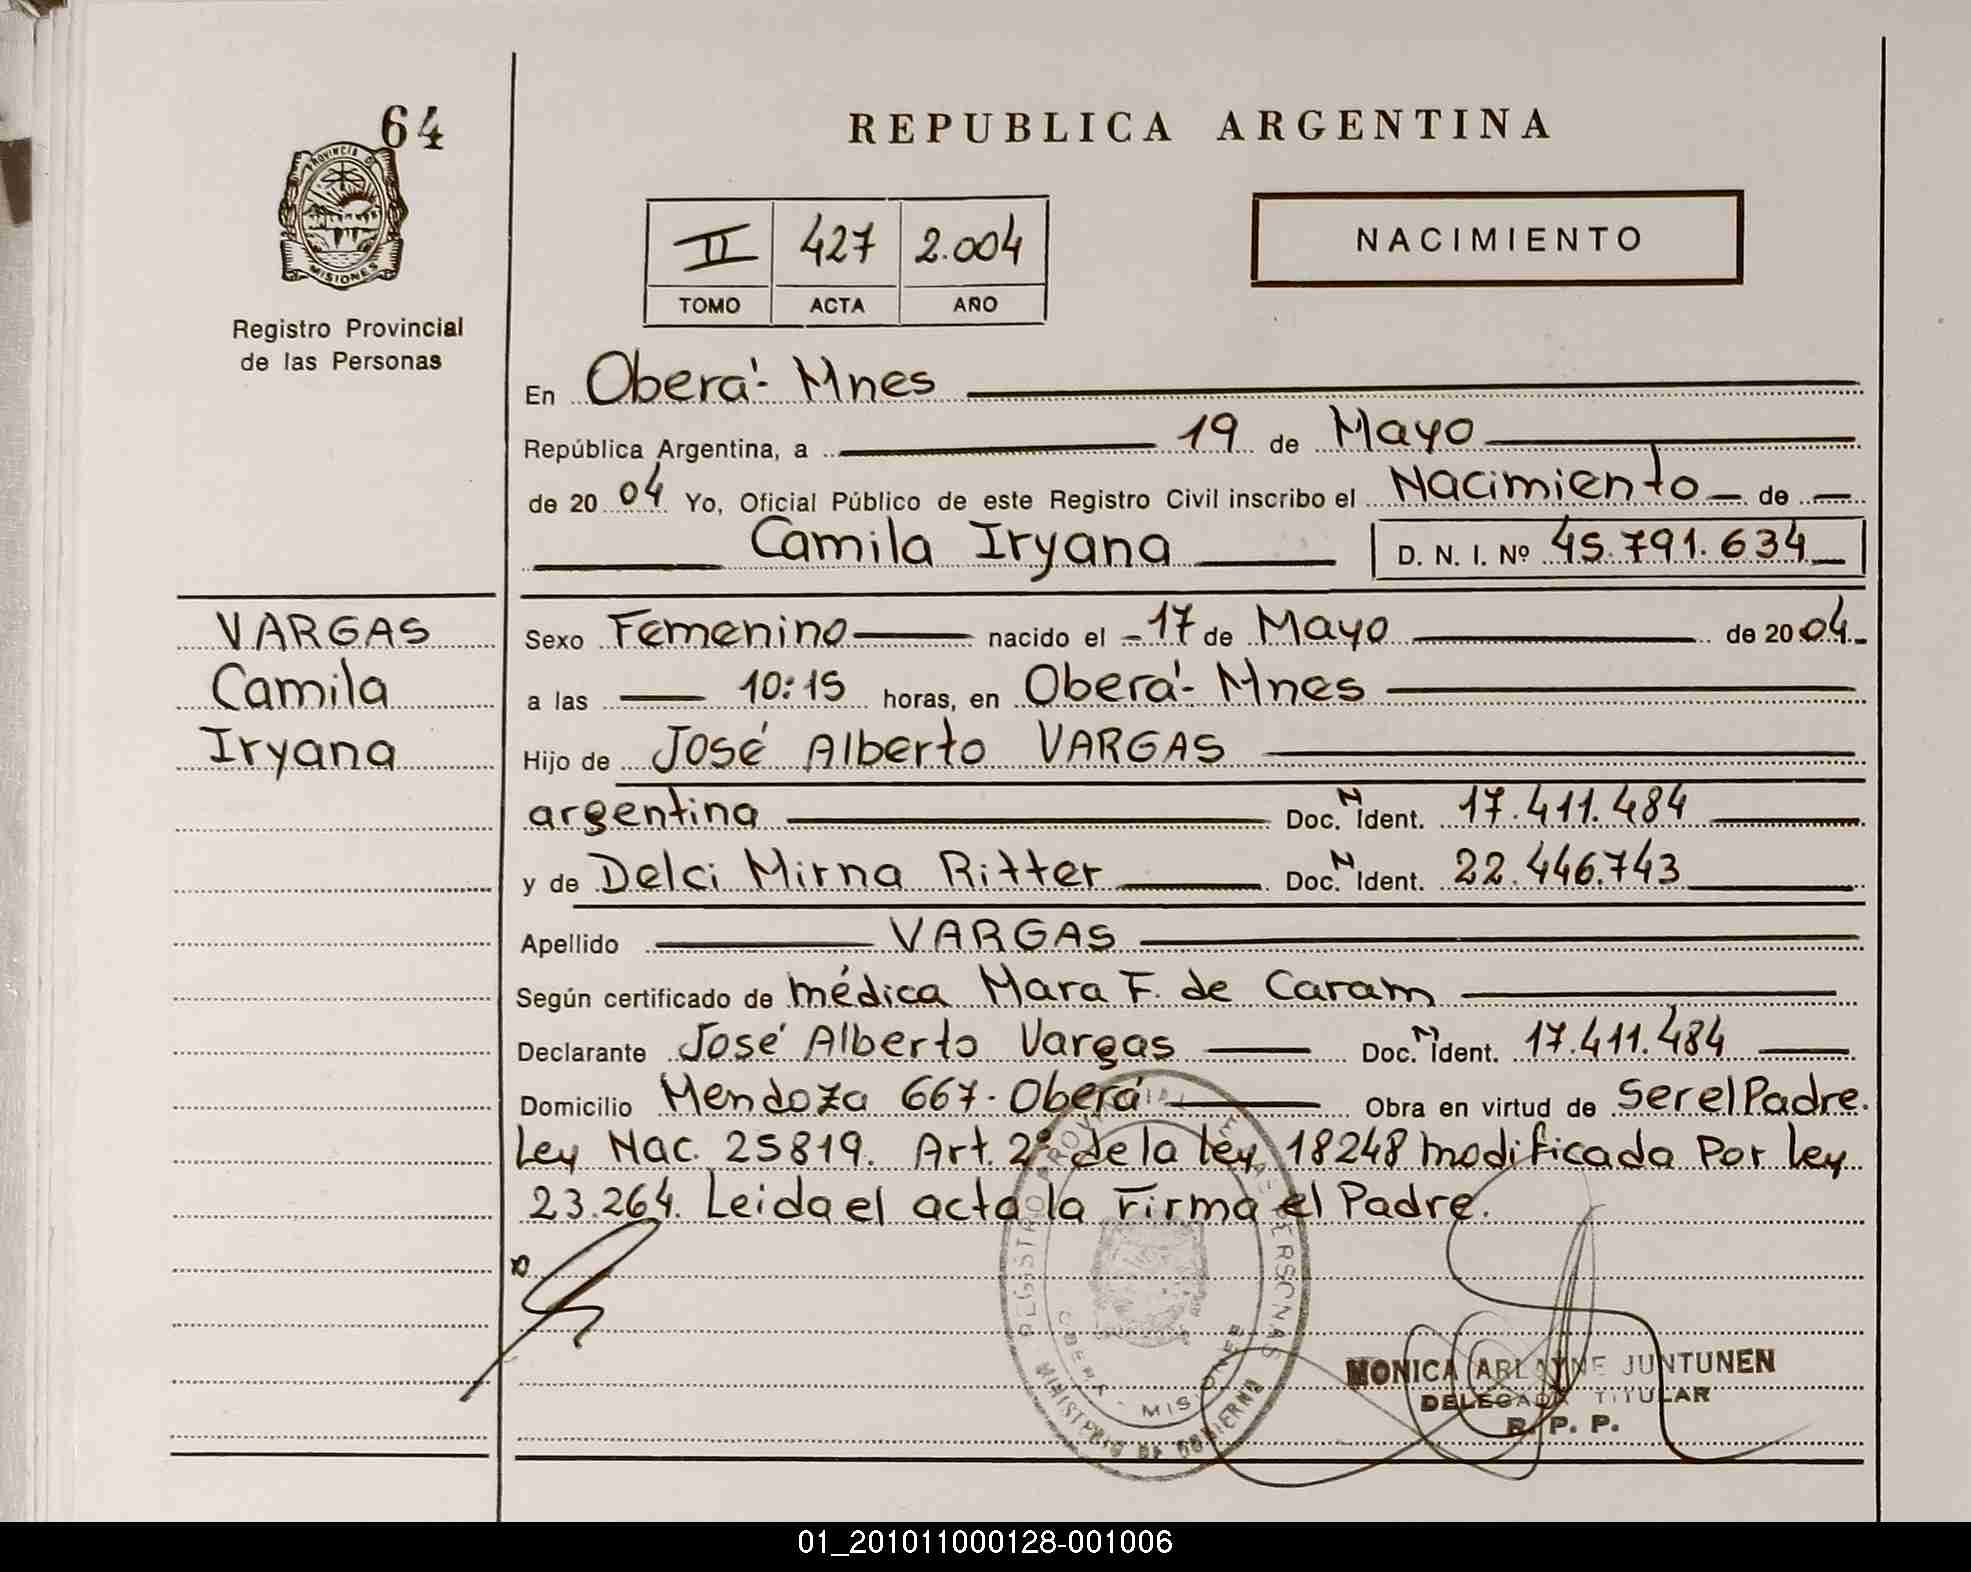 64
PROVINCIA DE
MISIONES
Registro Provincial
de las Personas
REPUBLICA ARGENTINA
II 427 2.004
TOMO ACTA AÑO
NACIMIENTO
En Oberá - Mnes
República Argentina, a 19 de Mayo
de 20 04 Yo, Oficial Público de este Registro Civil inscribo el Nacimiento de
Camila Iryana D. N. I. Nº 45.791.634
VARGAS
Camila
Iryana
Sexo Femenino nacido el 17 de Mayo de 20 04
a las 10:15 horas, en Oberá - Mnes
Hijo de José Alberto VARGAS
argentina Doc. N Ident. 17.411.484
y de Delci Mirna Ritter Doc. N Ident. 22.446.743
Apellido VARGAS
Según certificado de médica Mara F. de Caram
Declarante José Alberto Vargas Doc. N Ident. 17.411.484
Domicilio Mendoza 667 - Oberá Obra en virtud de Ser el Padre.
Ley Nac. 25819. Art. 2º de la ley 18248 modificada Por ley
23.264. Leida el acta la Firma el Padre.
REGISTRO PROVINCIAL DE LAS PERSONAS
OBERA - MISIONES
MINISTERIO DE GOBIERNO
MONICA ARLAYNE JUNTUNEN
DELEGADA TITULAR
R. P. P.
01_201011000128-001006